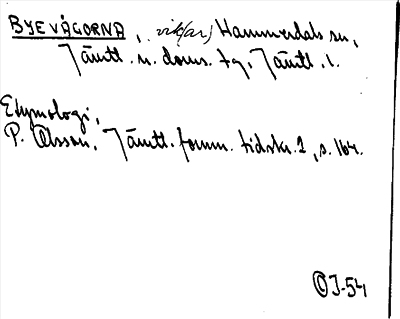 BYEVÅGORNA, vik(ar) Hammerdals sn,
Jämtl. n. doms. tg, Jämtl. l.
Etymologi,
P. Olsson, Jämtl. fornm. tidskr. 2, s. 164.
OJ-54